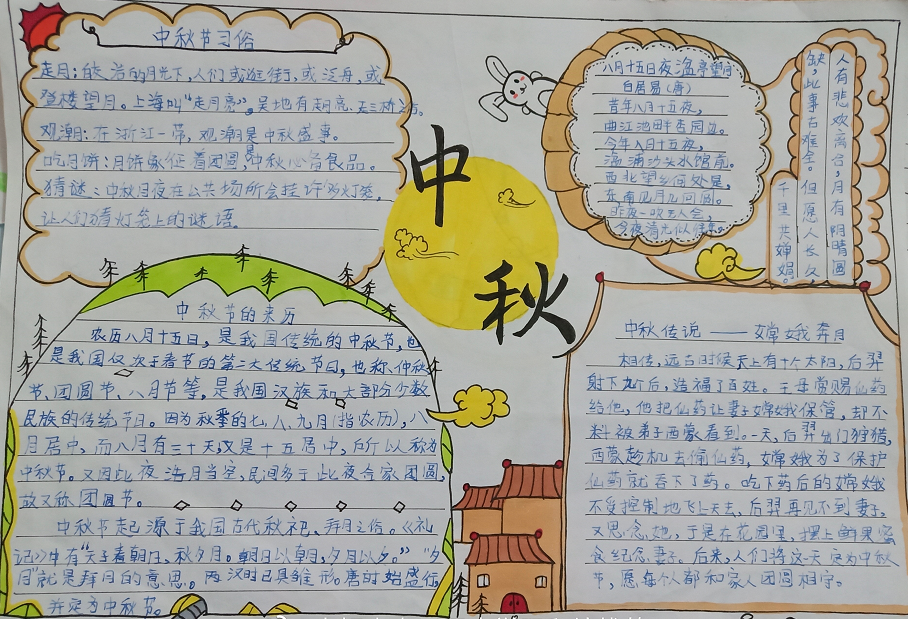 中秋节习俗
走月：皓洁的月光下，人们或逛街，或泛舟，或
登楼望月。上海叫"走月亮"，吴地有走月亮、走三桥
观潮：在浙江一带，观潮是中秋盛事。
吃月饼：月饼象征着团圆，是中秋必备食品。
猜谜：中秋月夜在公共场所会挂许多灯笼，
让人们猜灯笼上的谜语。
中秋
八月十五日夜湓亭望月
白居易（唐）
昔年八月十五夜，
曲江池畔杏园边。
今年八月十五夜，
湓浦沙头水馆前。
西北望乡何处是，
东南见月几回圆。
昨夜一吹无人会，
今夜清光似往年。
人有悲欢离合，月有阴晴圆
缺，此事古难全。但愿人长久，
千里共婵娟。
中秋节的来历
农历八月十五日，是我国传统的中秋节，也
是我国仅次于春节的第二大传统节日，也称仲秋
节、团圆节、八月节等，是我国汉族和大部分少数
民族的传统节日。因为秋季的七、八、九月（指农历），八
月居中，而八月有三十天，又是十五居中，所以称为
中秋节。又因此夜浩月当空，民间多于此夜合家团圆，
故又称团圆节。
中秋节起源于我国古代秋祀、拜月之俗。《礼
记》中有"天子春朝日，秋夕月。朝日以朝，夕月以夕。""夕
月"就是拜月的意思。两汉时已具雏形，唐时始盛行
并定为中秋节。
中秋传说——嫦娥奔月
相传，远古时候天上有十个太阳，后羿
射下九个后，造福了百姓。王母赏赐仙药
给他，他把仙药让妻子嫦娥保管，却不
料被弟子西蒙看到。一天，后羿出门狩猎，
西蒙趁机去偷仙药，嫦娥为了保护
仙药就吞下了药。吃下药后的嫦娥
不受控制地飞上天去，后羿再见不到妻子，
又思念她，于是在花园里，摆上鲜果蜜
食纪念妻子。后来，人们将这一天定为中秋
节，愿每个人都和家人团圆相守。